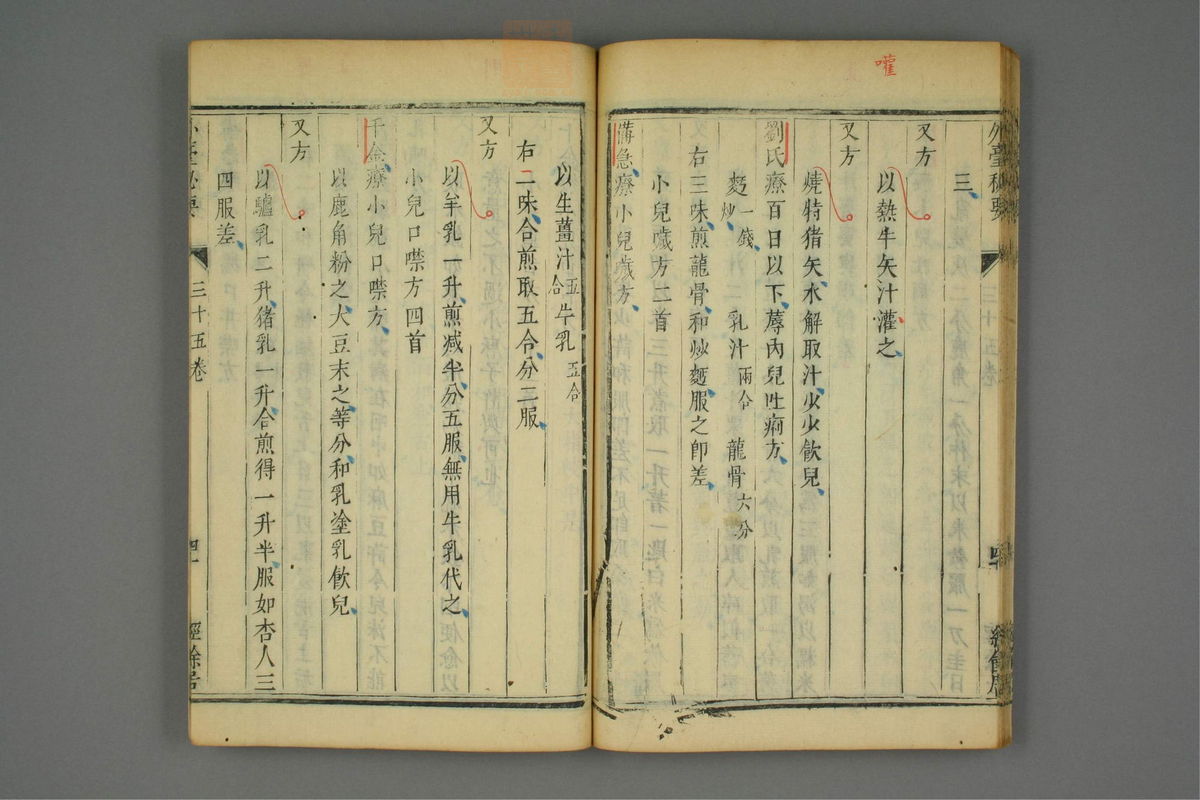 嚾
外臺秘要
三
又方
以熱牛矢汁灌之
又方
燒特猪矢水解取汁少少飲兒
劉氏療百日以下蓐內兒吐痢方
麪一錢炒 乳汁兩合 龍骨六分
右三味煎龍骨和炒麪服之卽差
小兒噦方二首
備急療小兒噦方
以生薑汁五合牛乳五合
右二味合煎取五合分三服
又方
以羊乳一升煎減半分五服無用牛乳代之
小兒口噤方四首
千金療小兒口噤方
以鹿角粉之大豆末之等分和乳塗乳飲兒
又方
以驢乳二升猪乳一升合煎得一升半服如杏人三
四服差
三十五卷
四十一
經餘居